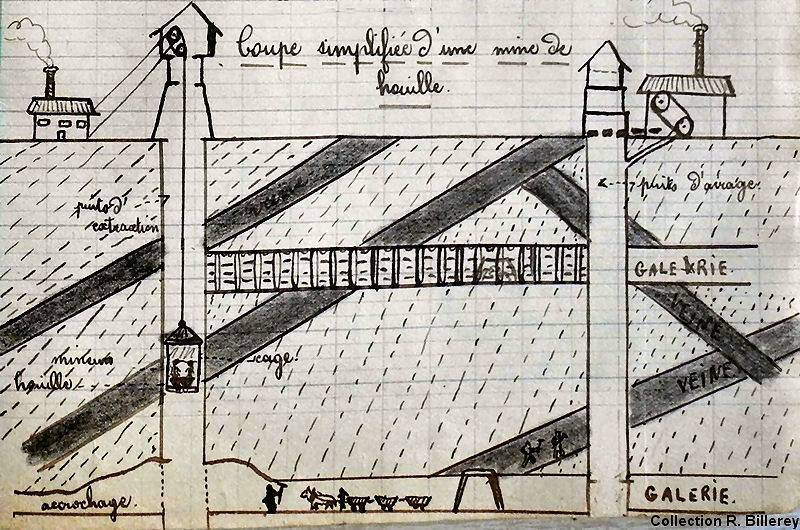 Coupe simplifiée d'une mine de
houille.
puits d'
extraction
puits d'airage.
GALERIE.
veine
VEINE
VEINE
mineurs
houille
cage.
accrochage.
GALERIE.
Collection R. Billerey